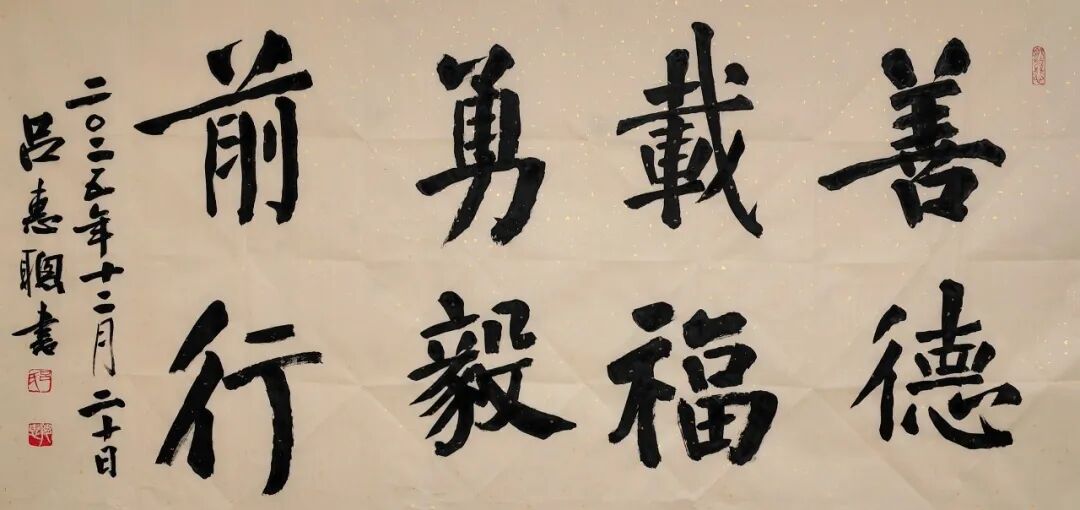 善德
載福
勇毅
前行
二〇二五年十二月二十日
吕惠聰書